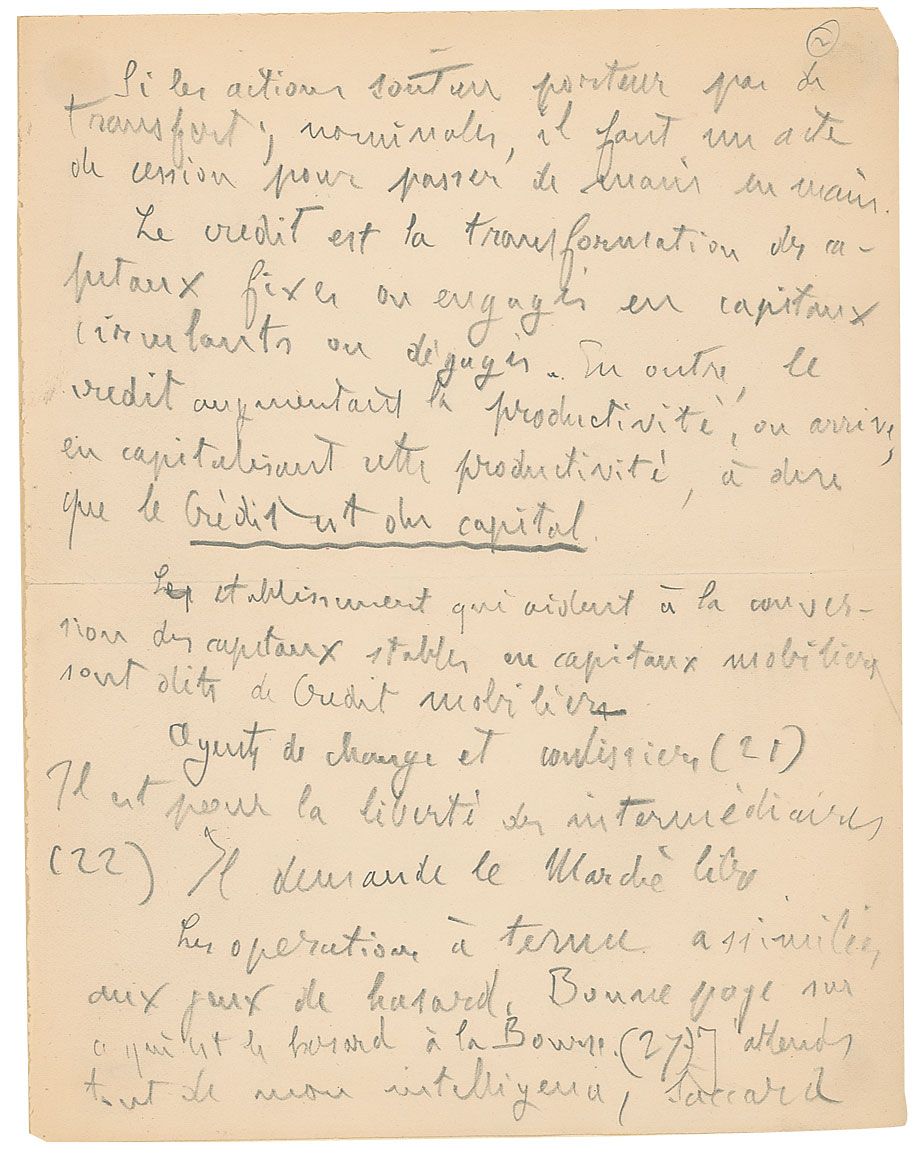 2
Si les actions sont au porteur pas de
transfert ; nominales, il faut un acte
de cession pour passer de main en main.
Le credit est la transformation des ca-
pitaux fixes ou engagés en capitaux
circulants ou dégagés. En outre, le
credit augmentant la productivité, on arrive,
en capitalisant cette productivité, à dire
que le Crédit est du capital.
Les etablissement qui aident à la conver-
sion des capitaux stables en capitaux mobiliers
sont dits de Credit mobilier
Agents de change et coulissiers (21)
Il est pour la liberté des intermédiaires
(22) Il demande le Marché libre
Les operations à terme assimilées
aux jeux de hasard. Bonne page sur
ce qu'est le hasard à la Bourse. (27)] attends
tout de mon intelligence, Saccard